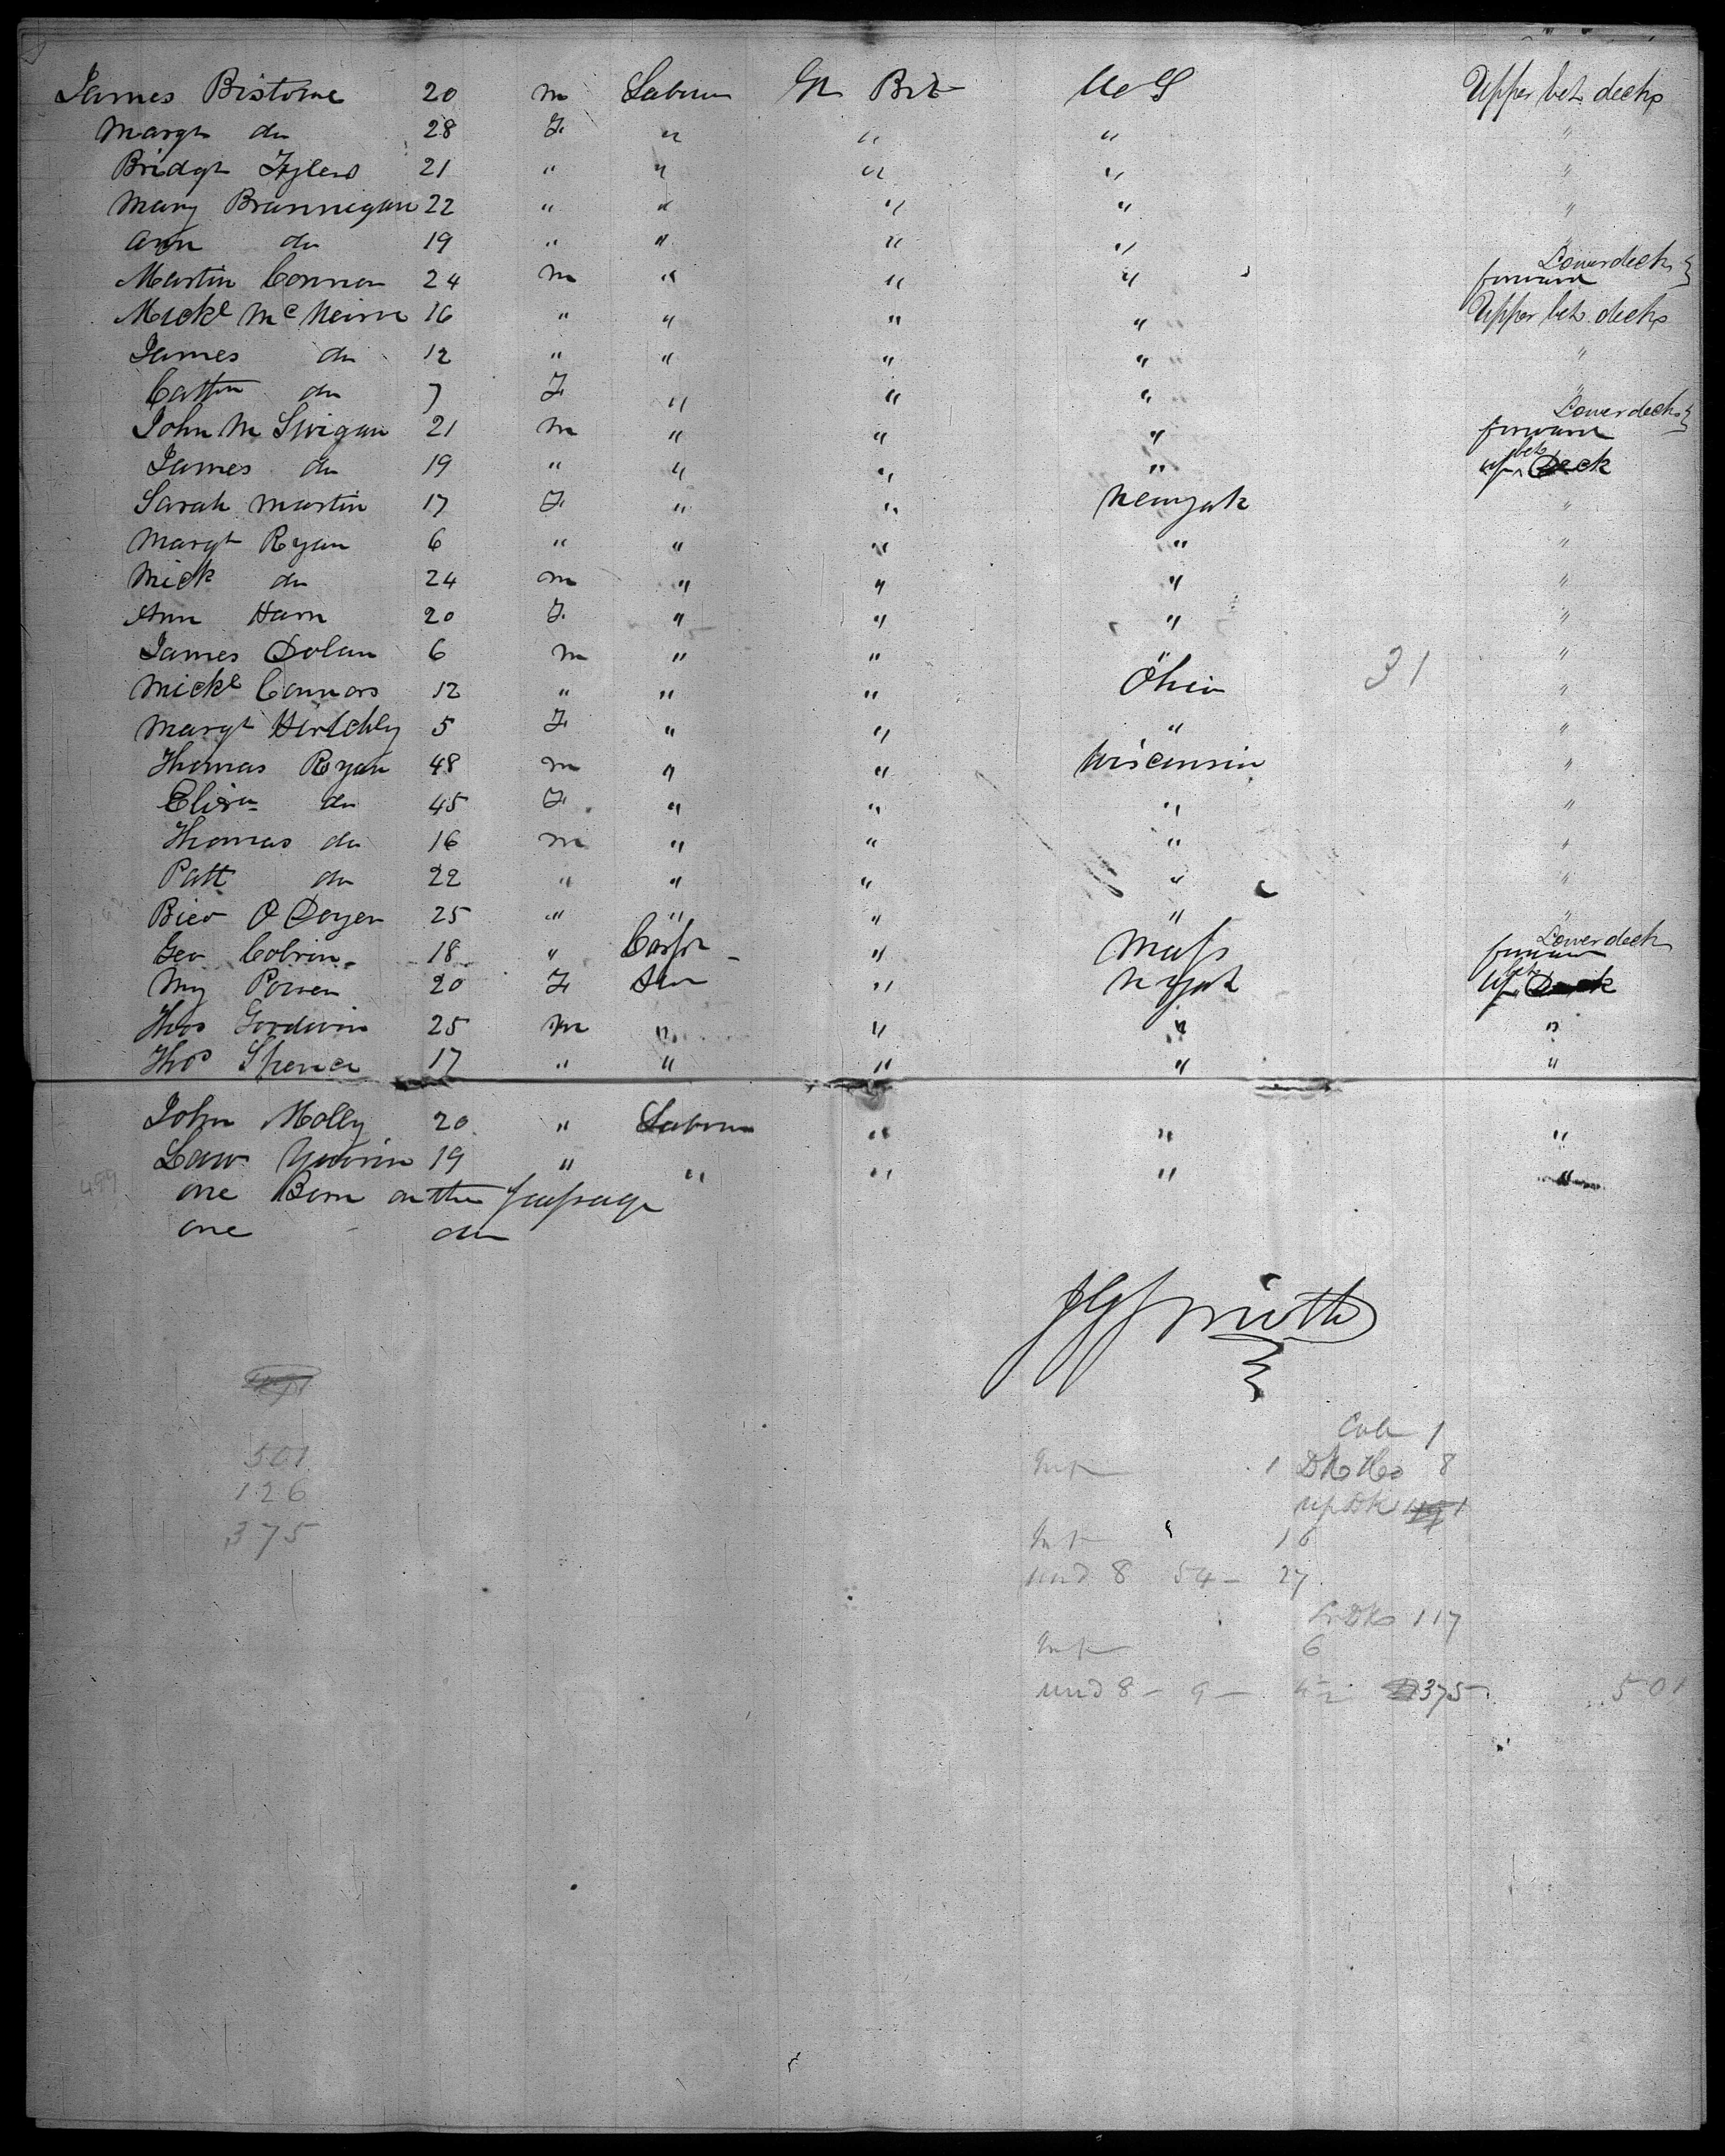 James Bistowe 20 m Labour Gr Brit U S Upper bet decks
Margt do 28 F " " " "
Bridgt 21 " " " " "
Mary Brannigan 22 " " " " "
Ann do 19 " " " "
Martin Connor 24 m " " " Lower deck forward
Mickl Mc 16 " " " " Upper bet decks
James do 12 " " " " "
Cathn do 7 F " " " "
John M Swigan 21 m " " " Lower deck forward
James do 19 " " " " up bet Deck
Sarah Martin 17 F " " Newyork "
Margt Ryan 6 " " " " "
Mick do 24 m " " " "
Ann Harn 20 F " " " "
James Dolan 6 m " " " "
Mickl Connors 12 " " " Ohio 31 "
Margt 5 F " " " "
Thomas Ryan 48 m " " Wisconsin "
Eliza do 45 F " " " "
Thomas do 16 m " " " "
Patt do 22 " " " " "
O Doyer 25 " " " " "
Geo Colvin 18 " Carpr " Mass Lower deck forward
My Power 20 F " N York up bet Deck
Thos Goodwin 25 m " " " "
Thos Spencer 17 " " " " "
John Molly 20 " Labour " " "
Law 19 " " " " "
499
one Born on the passage
one do
J G Smith
Cab 1
501
Inf 1 Dk Ho 8
126
up Dk
375
Inf 16
und 8 54 - 27
Lr Dk 117
Inf 6
und 8 - 9 - 4½ 375 501